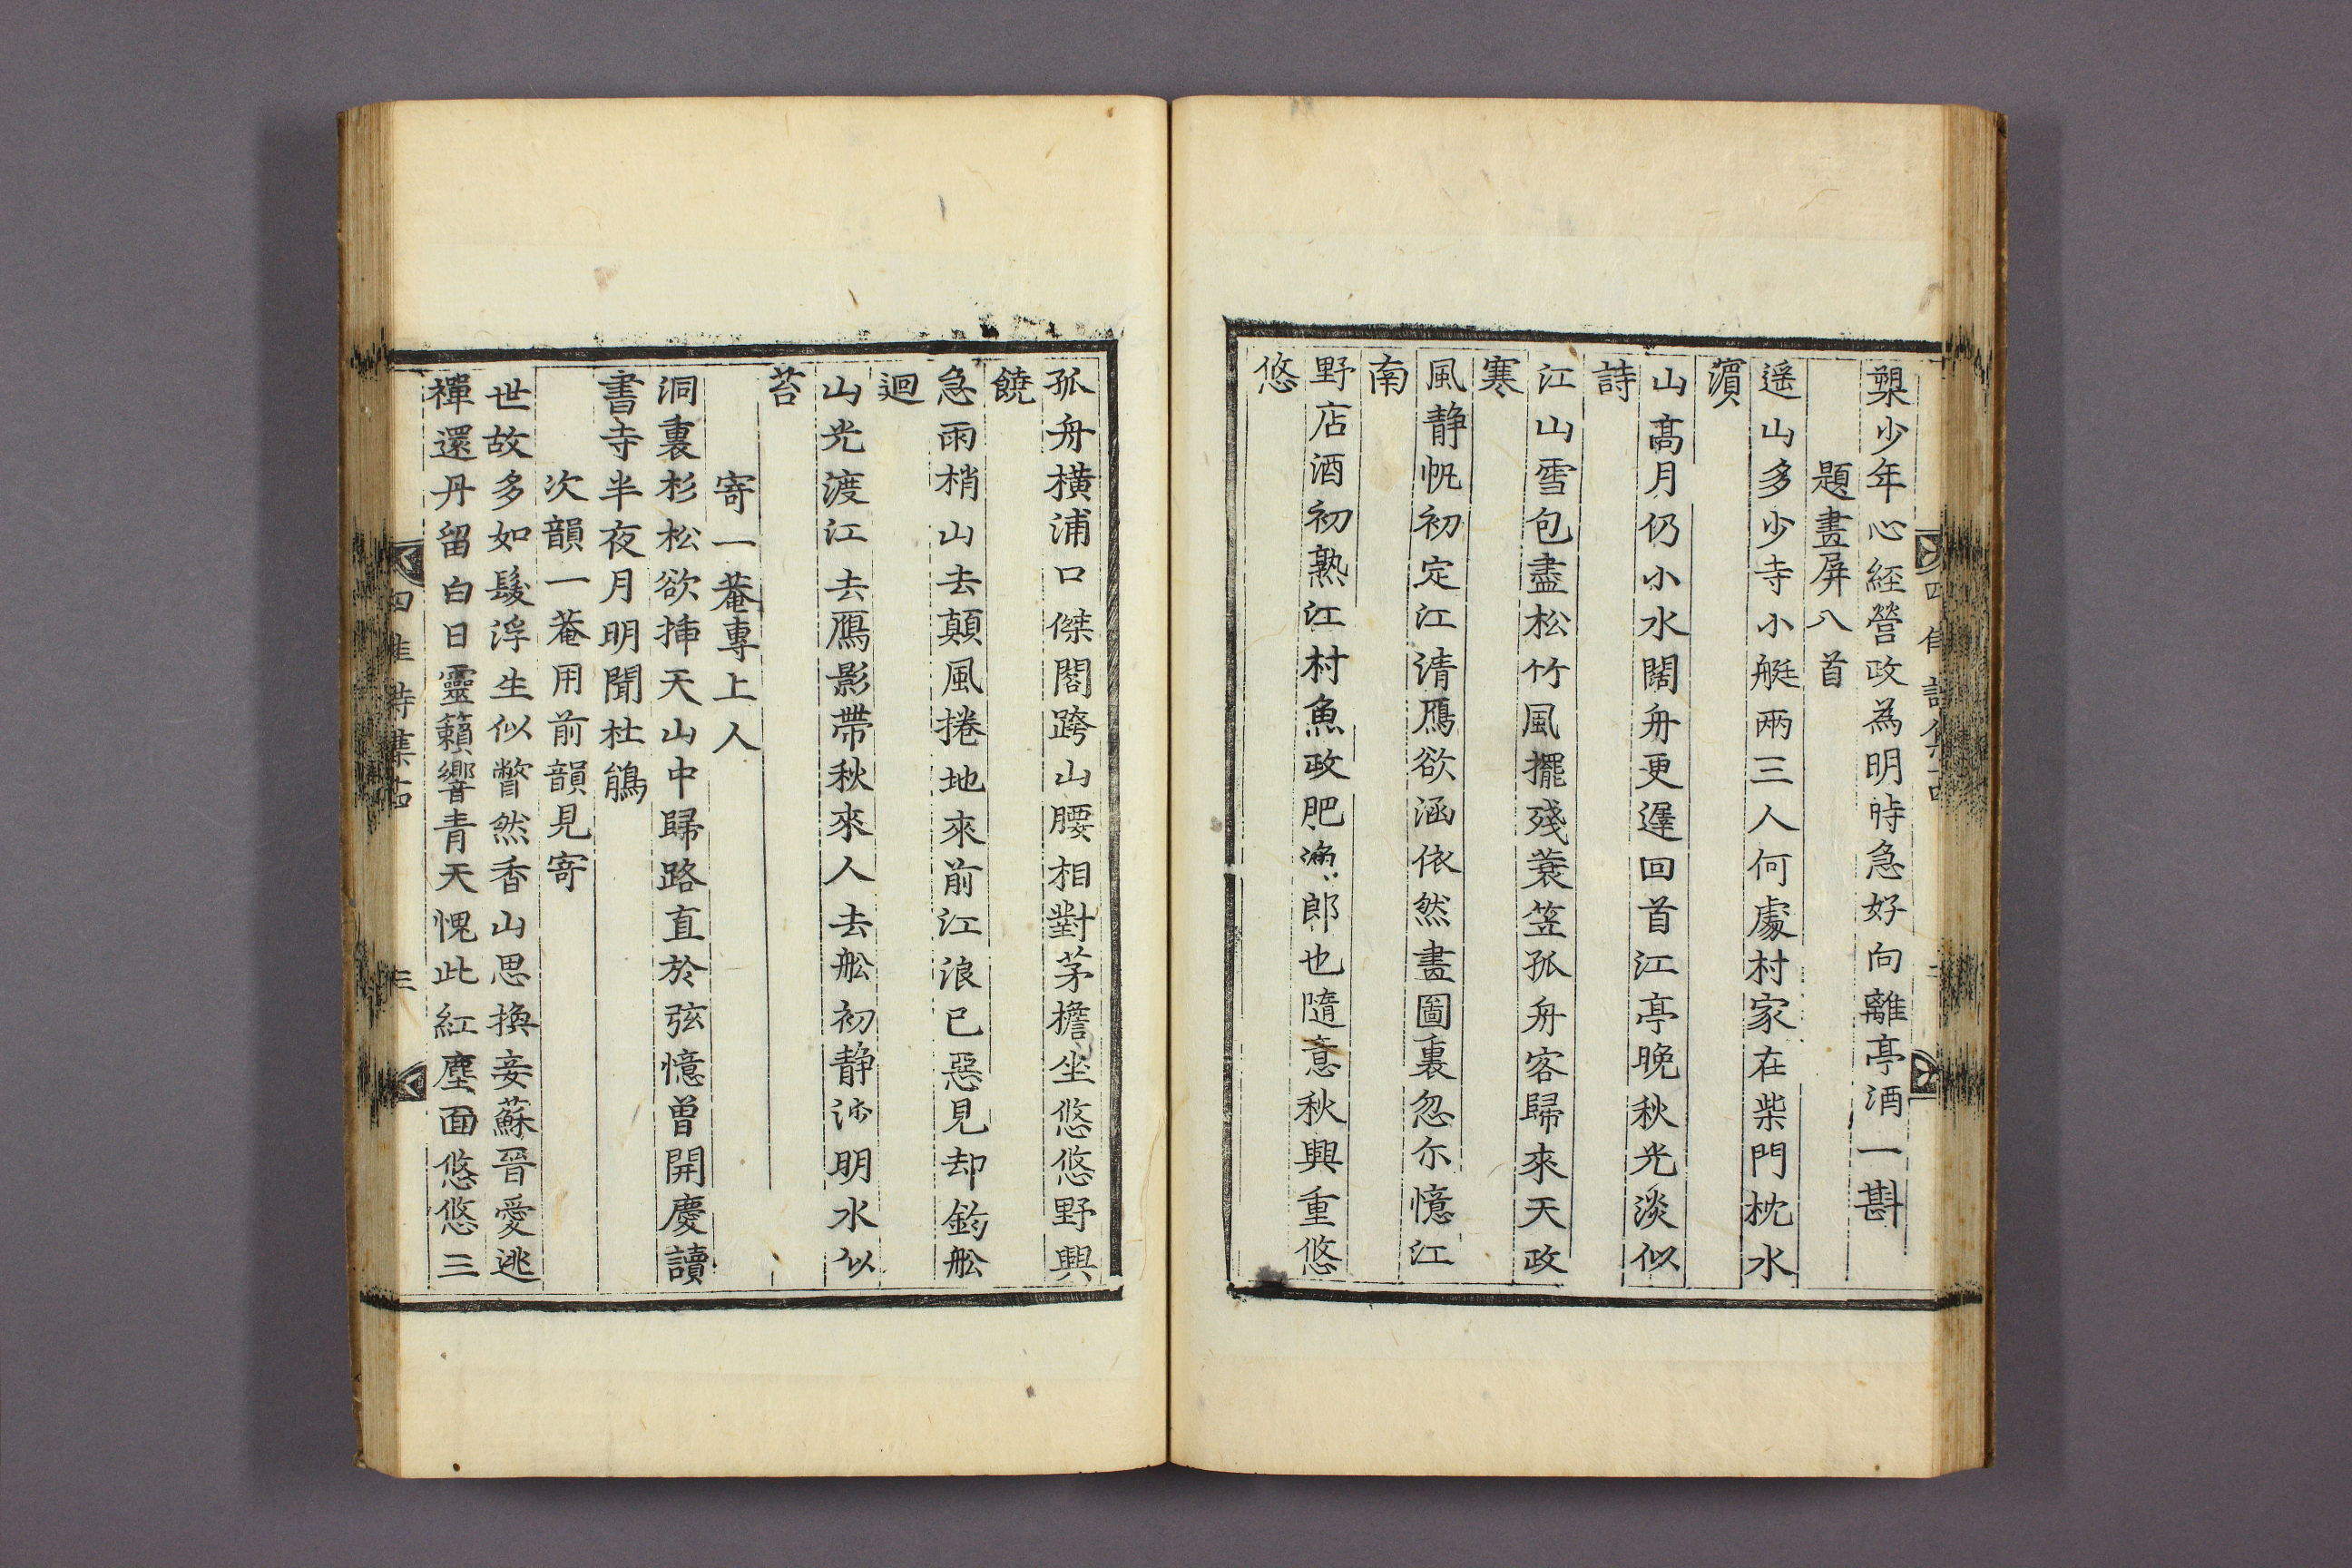 槼少年心経營政為明時急好向離亭酒一斟
題畫屏八首
遥山多少寺小艇兩三人何處村家在柴門枕水
濵
山高月仍小水闊舟更遲回首江亭晚秋光淡似
詩
江山雪包盡松竹風擺殘蓑笠孤舟客歸來天政
寒
風静帆初定江清鴈欲涵依然畫圖裏忽尓憶江
南
野店酒初熟江村魚政肥漁郎也隨意秋興重悠
悠
孤舟横浦口傑閣跨山腰相對茅檐坐悠悠野興
饒
急雨梢山去顛風捲地來前江浪已惡見却釣舩
迴
山光渡江去鴈影帶秋來人去舩初静沙明水似
苔
寄一菴專上人
洞裏杉松欲挿天山中歸路直於弦憶曾開慶讀
書寺半夜月明聞杜鵑
次韻一菴用前韻見寄
世故多如髮浮生似瞥然香山思換妾蘇晉愛逃
禪還丹留白日靈籟響青天愧此紅塵面悠悠三
四佳詩集
三